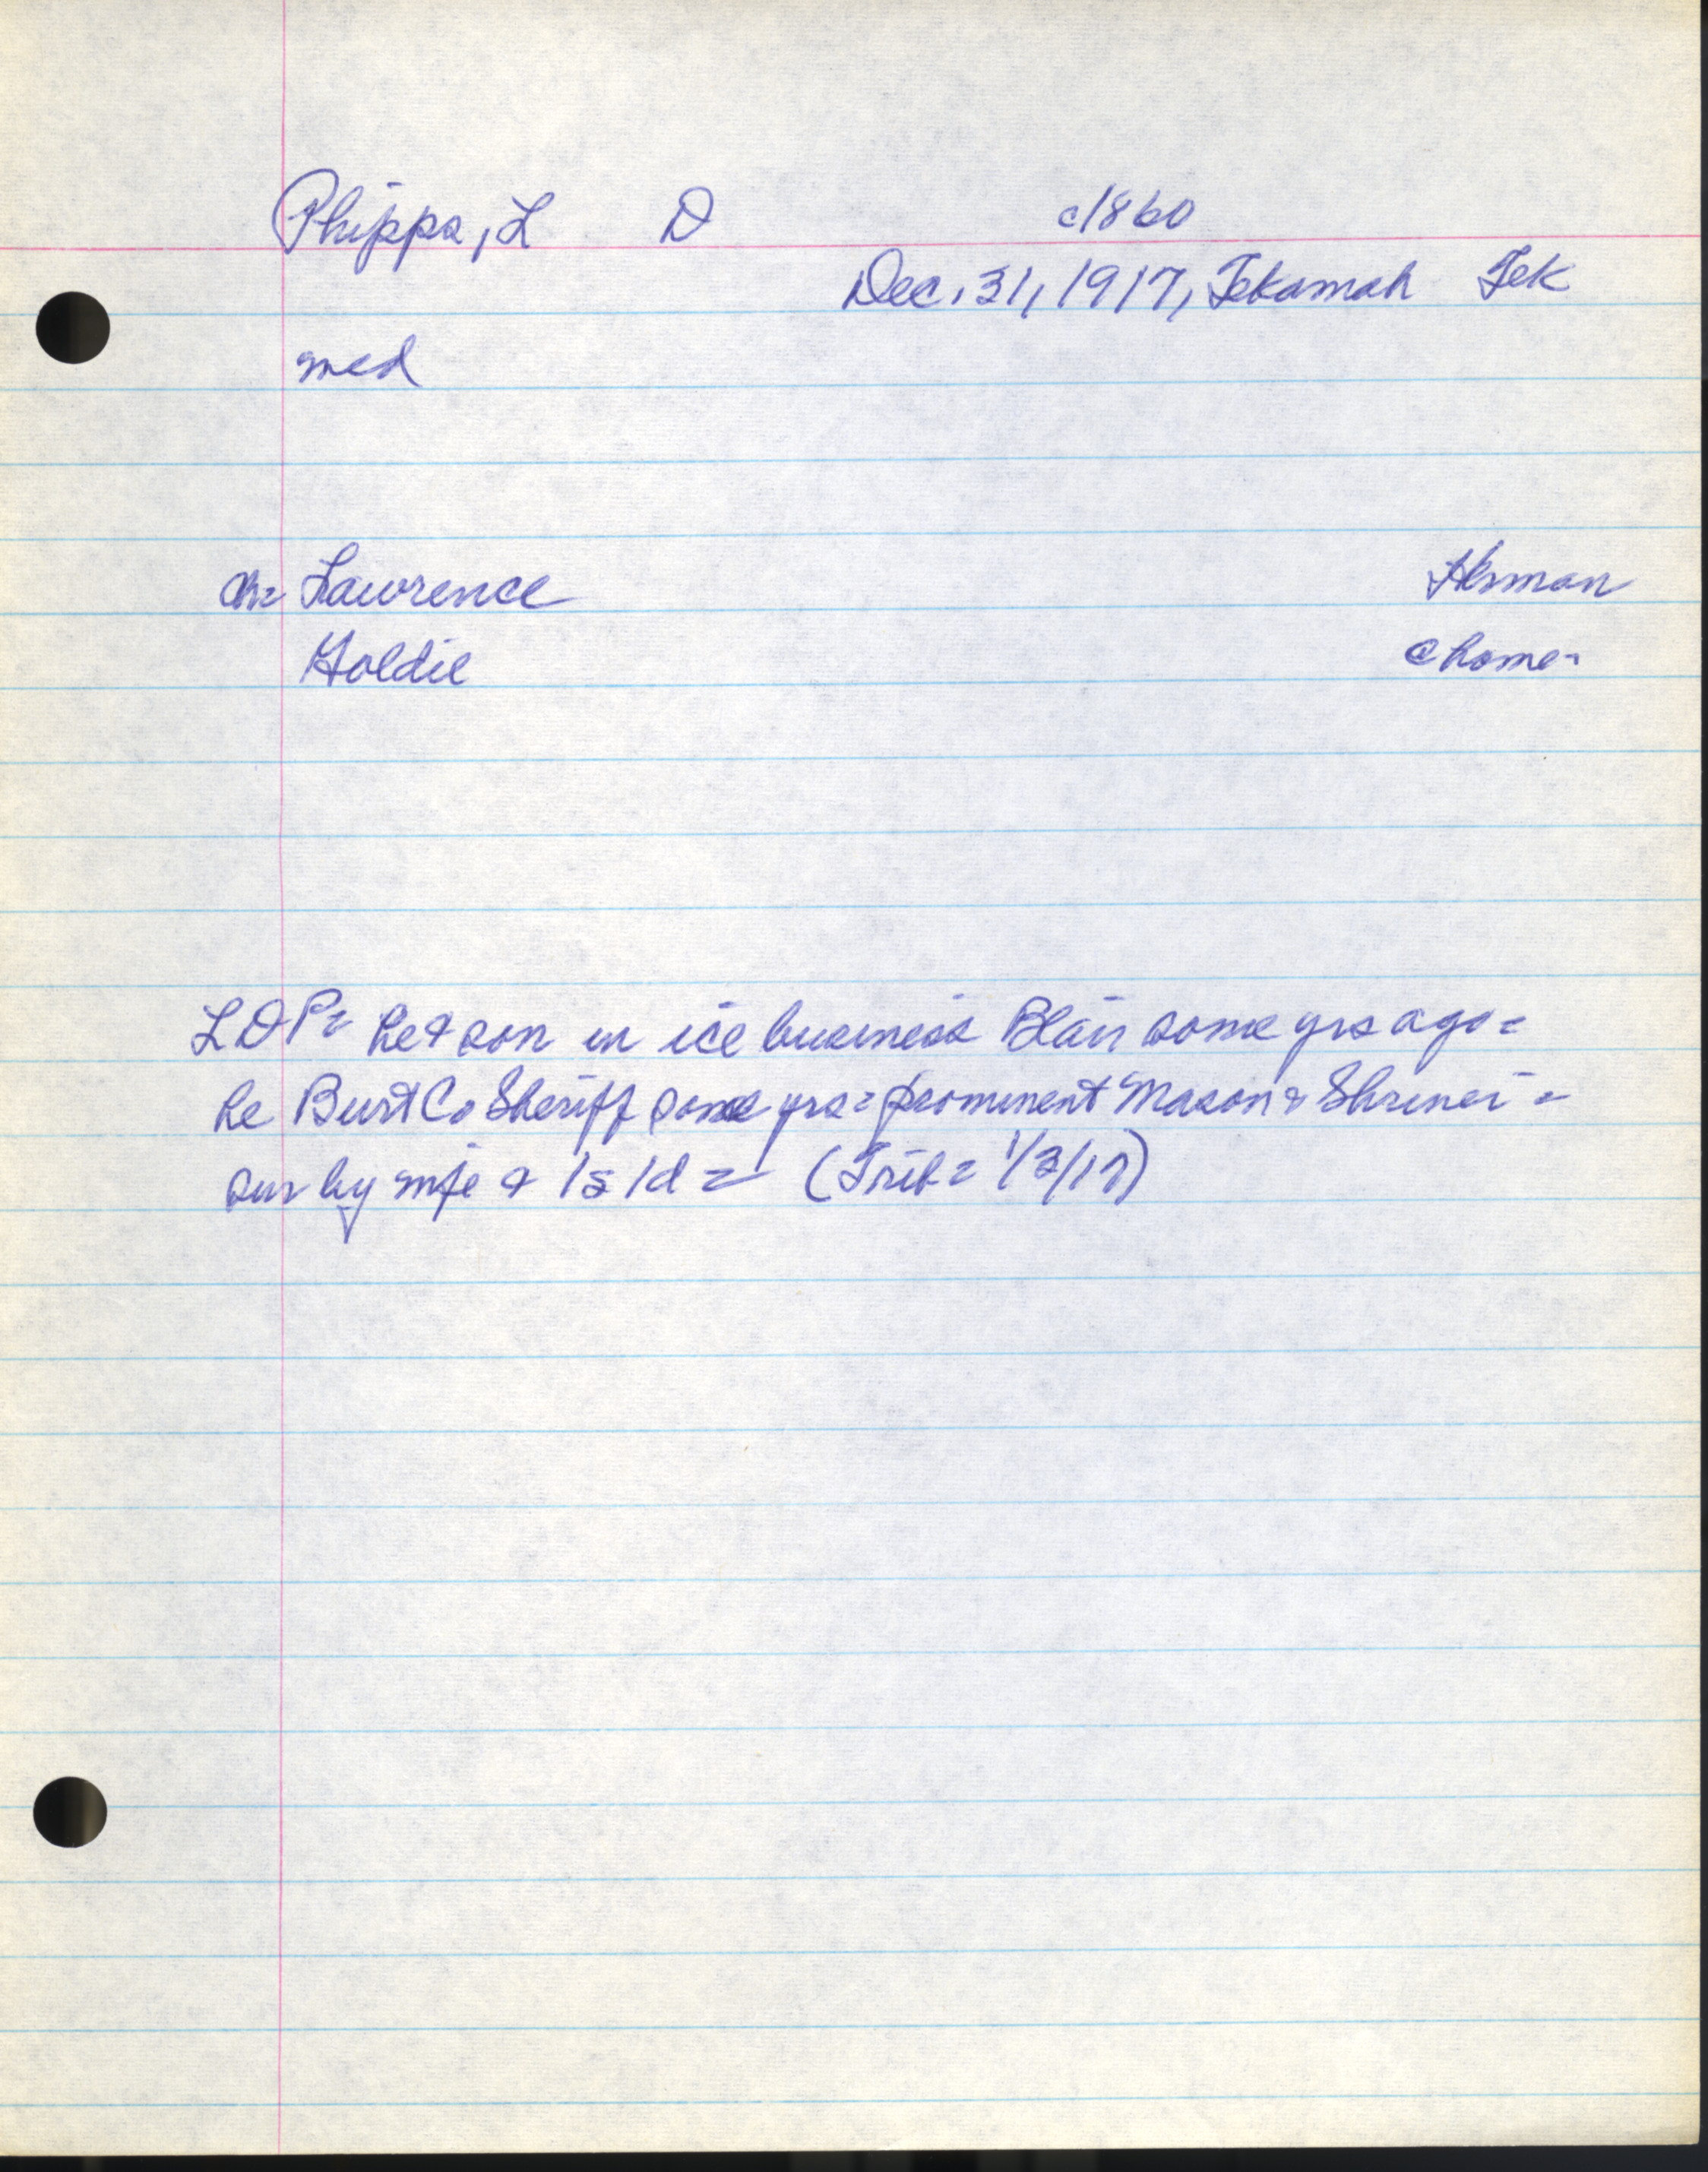 Phipps, L D c1860
Dec. 31, 1917, Tekamah Tek
med
ch= Lawrence Herman
Goldie @ home-
LDP= he & son in ice business Blair some yrs ago=
he Burt Co Sheriff some yrs= prominent Mason & Shriner=
sur by wife & 1s 1d= (Trib= 1/3/17)